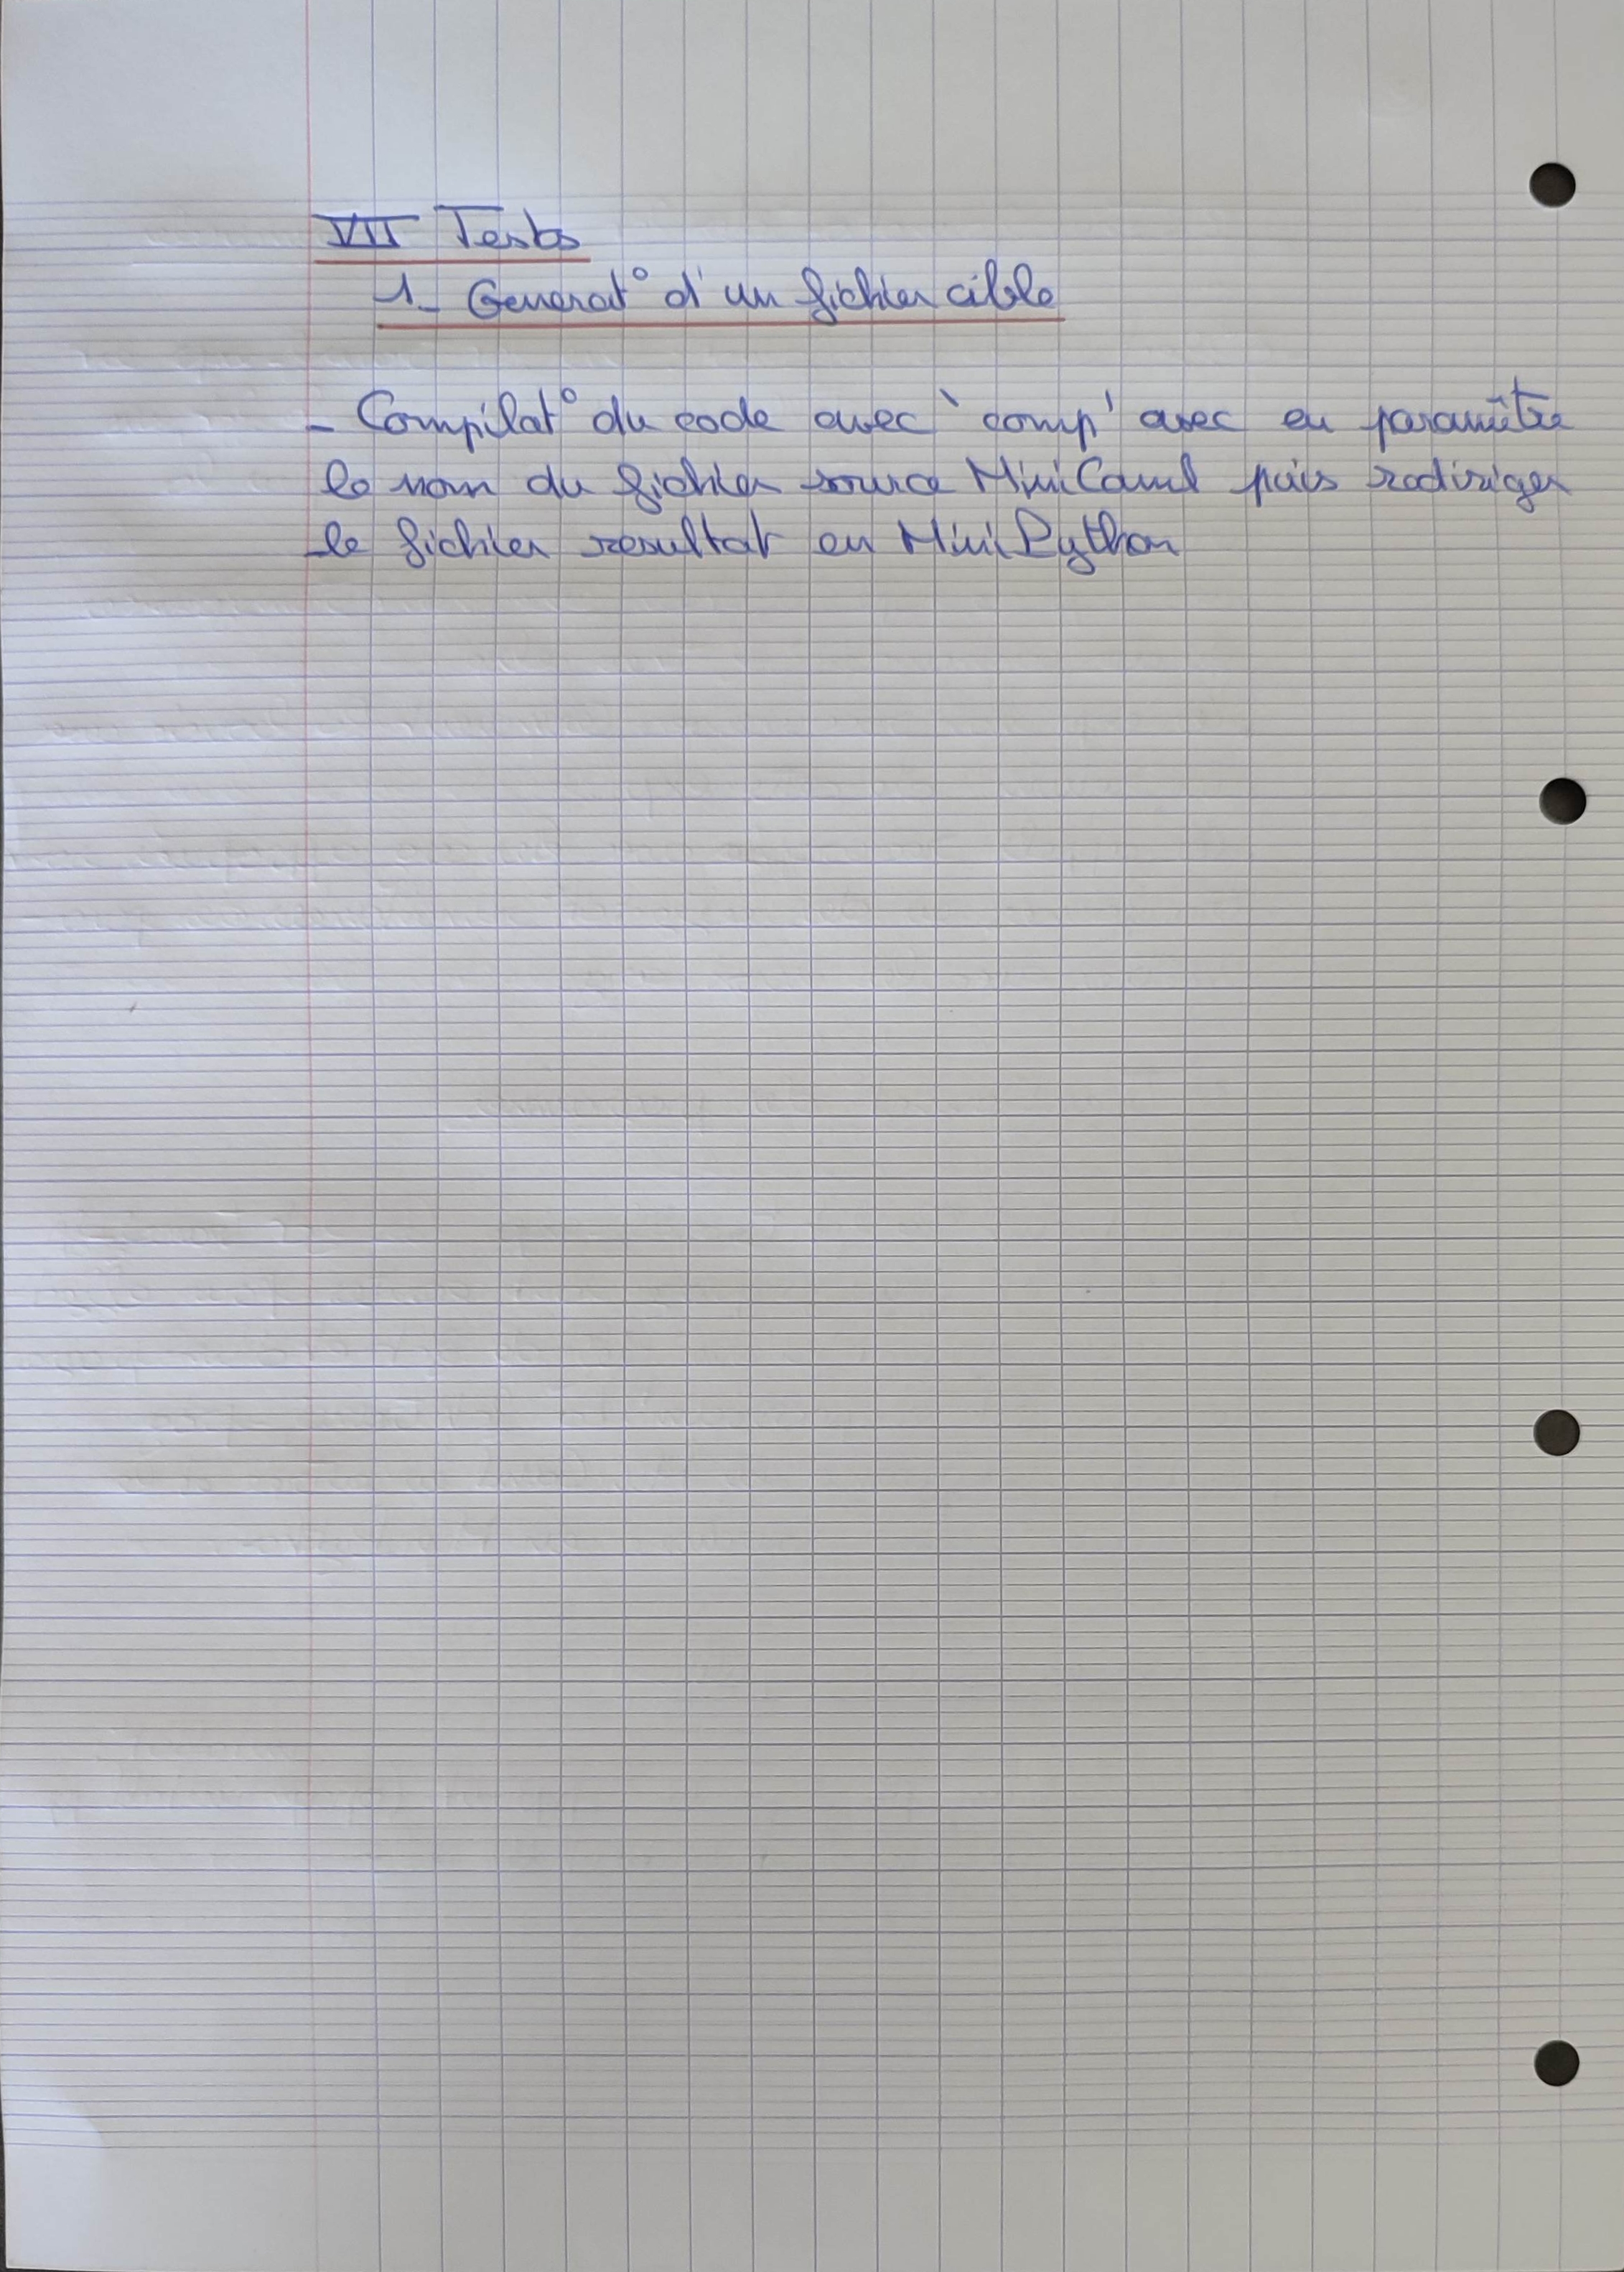 VII Tests
1- Generat° d'un fichier cible
- Compilat° du code avec `comp' avec en paramètre
le nom du fichier source MiniCaml puis rediriger
le fichier resultat en MiniPython